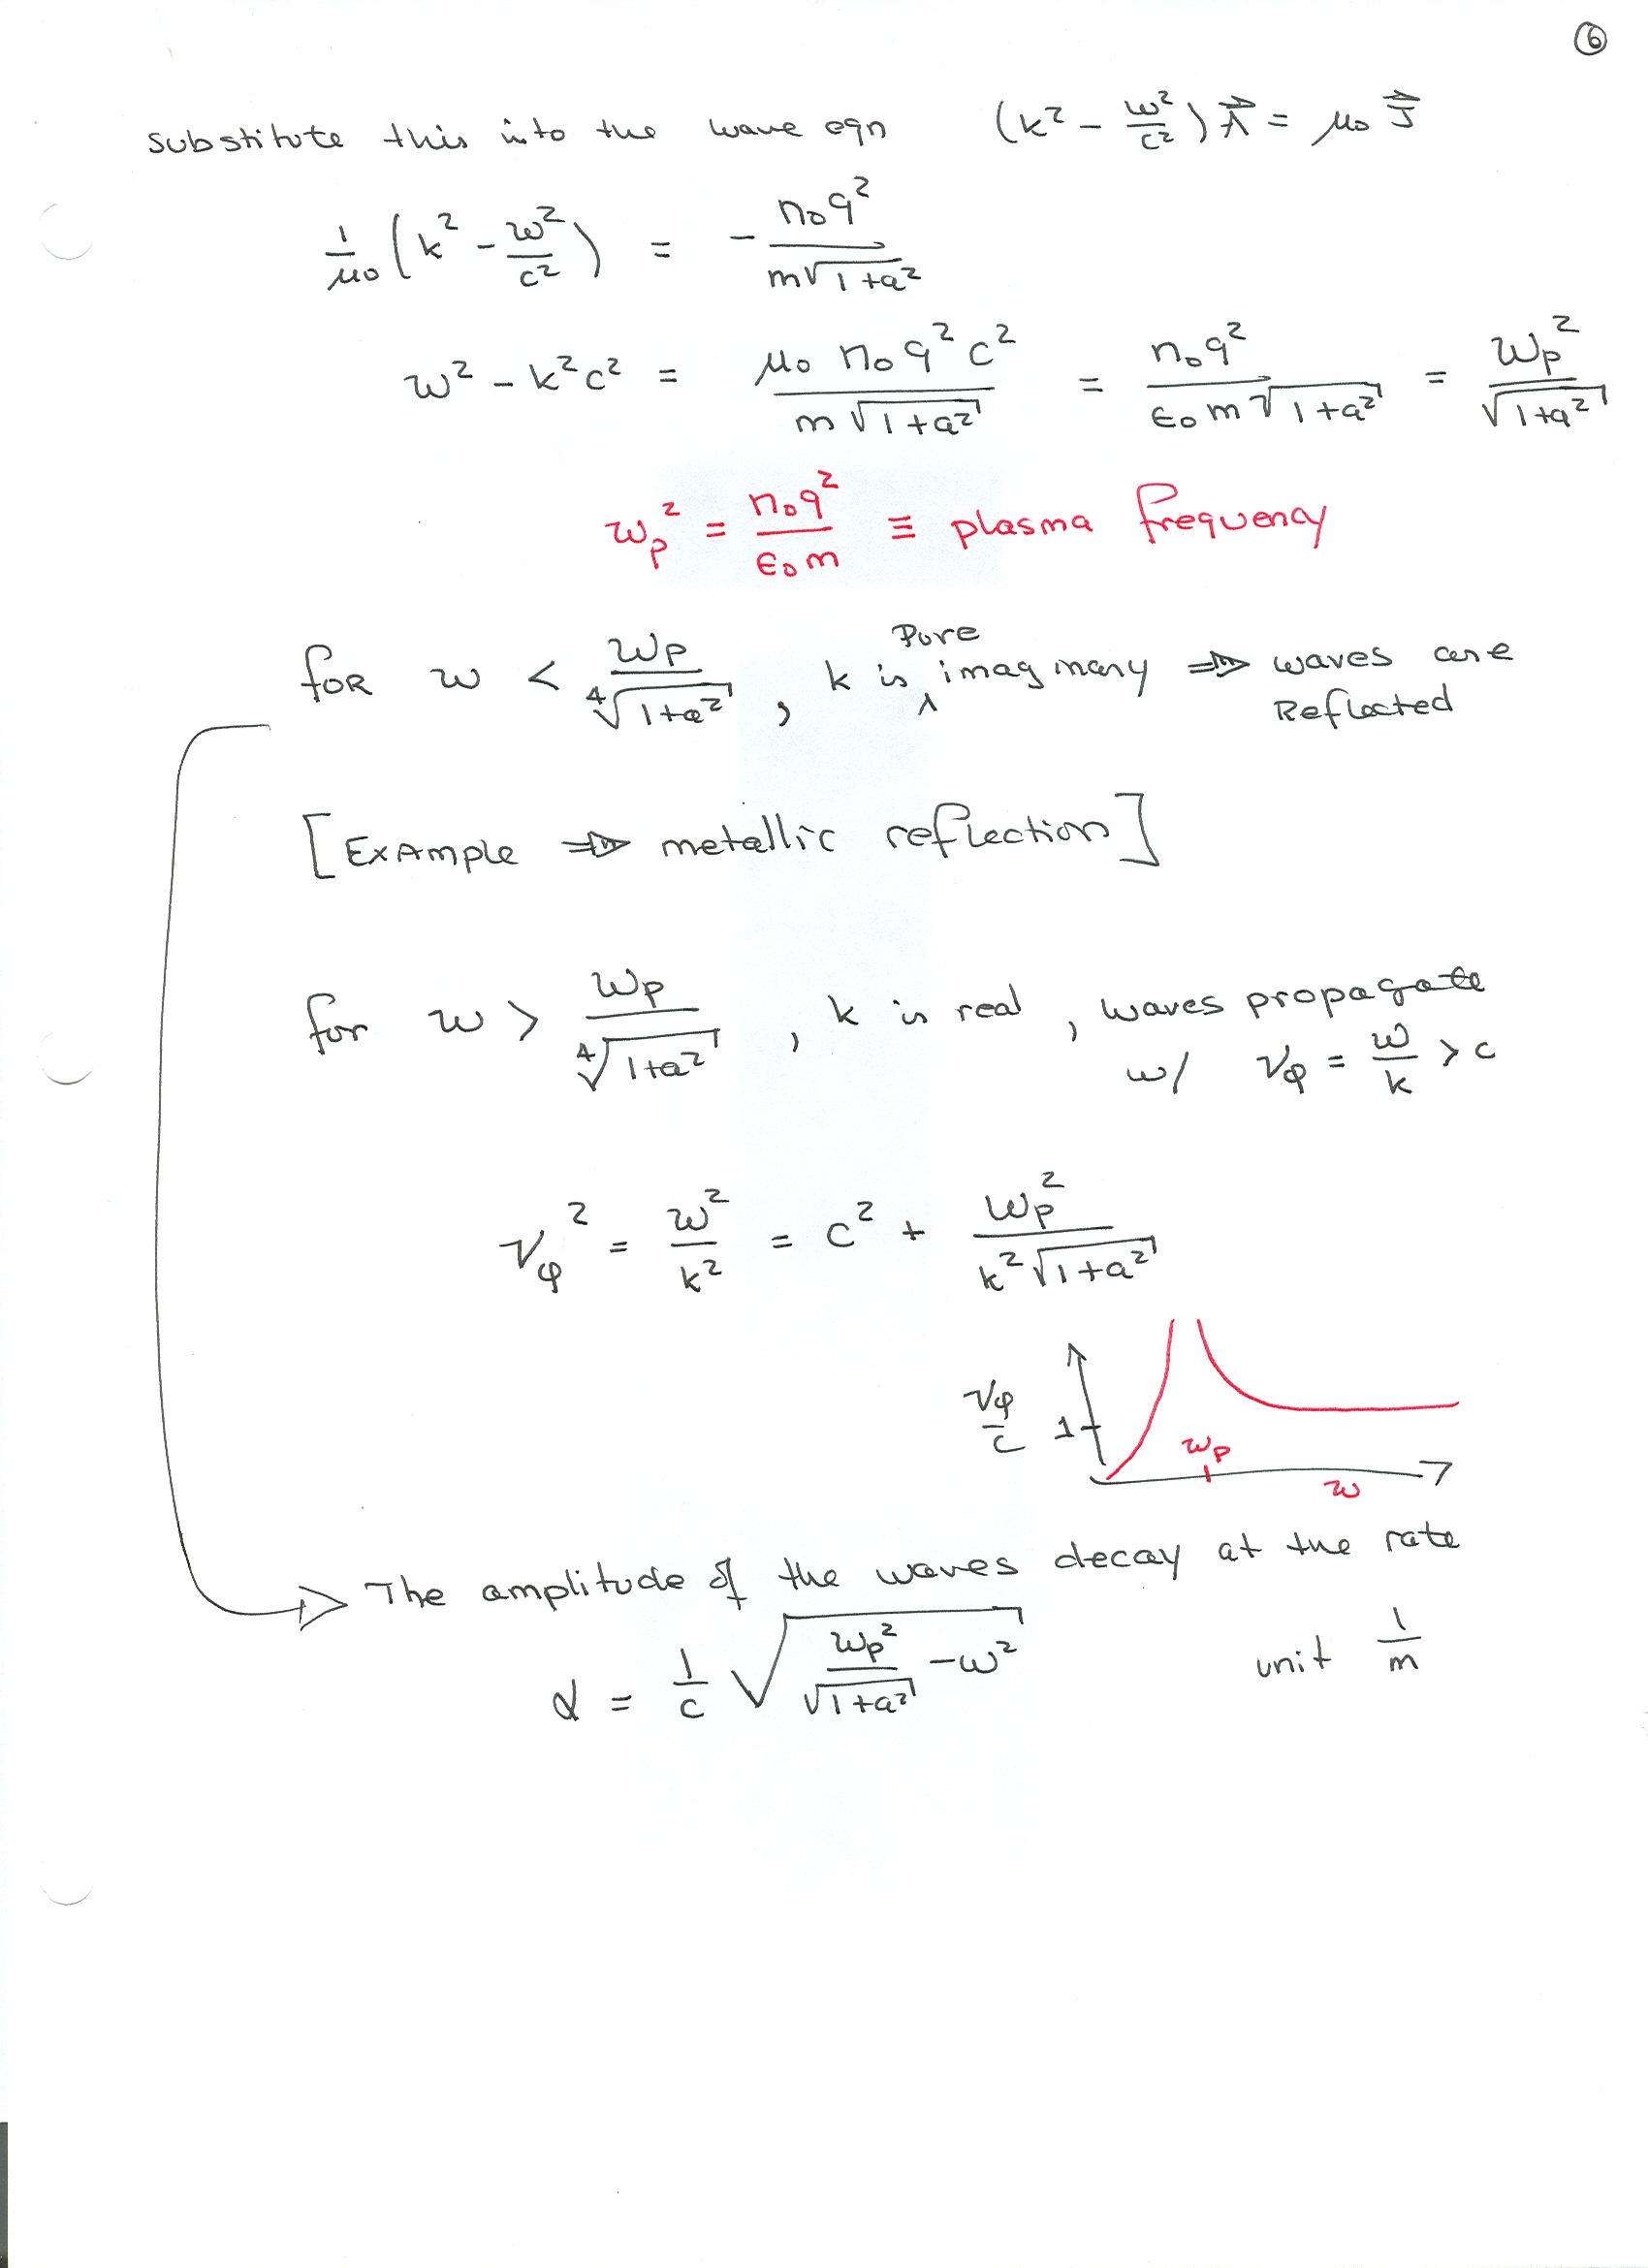 ⑥
substitute this into the wave eqn (k² − ω²/c²) A⃗ = μ₀ J⃗
1/μ₀ (k² − ω²/c²) = − n₀q² / m√(1+a²)
ω² − k²c² = μ₀ n₀ q² c² / m√(1+a²) = n₀q² / ε₀ m√(1+a²) = ωp² / √(1+a²)
ωp² = n₀q² / ε₀m ≡ plasma frequency
for ω < ωp / ∜(1+a²) , k is pure imaginary ⇒ waves are
Reflected
[Example ⇒ metallic reflection]
for ω > ωp / ∜(1+a²) , k is real , waves propagate
w/ Vφ = ω/k > c
Vφ² = ω²/k² = c² + ωp² / k²√(1+a²)
Vφ/c 1 ωp ω
The amplitude of the waves decay at the rate
α = 1/c √(ωp²/√(1+a²) − ω²) unit 1/m